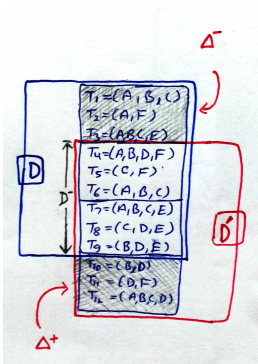 Δ⁻
T₁=(A,B,C)
T₂=(A,F)
T₃=(ABC,E)
T₄=(A,B,D,F)
T₅=(C,F)
T₆=(A,B,C)
T₇=(A,B,C,E)
T₈=(C,D,E)
T₉=(B,D,E)
T₁₀=(B,D)
T₁₁=(D,F)
T₁₂=(A,B,C,D)
D
D⁻
D′
Δ⁺